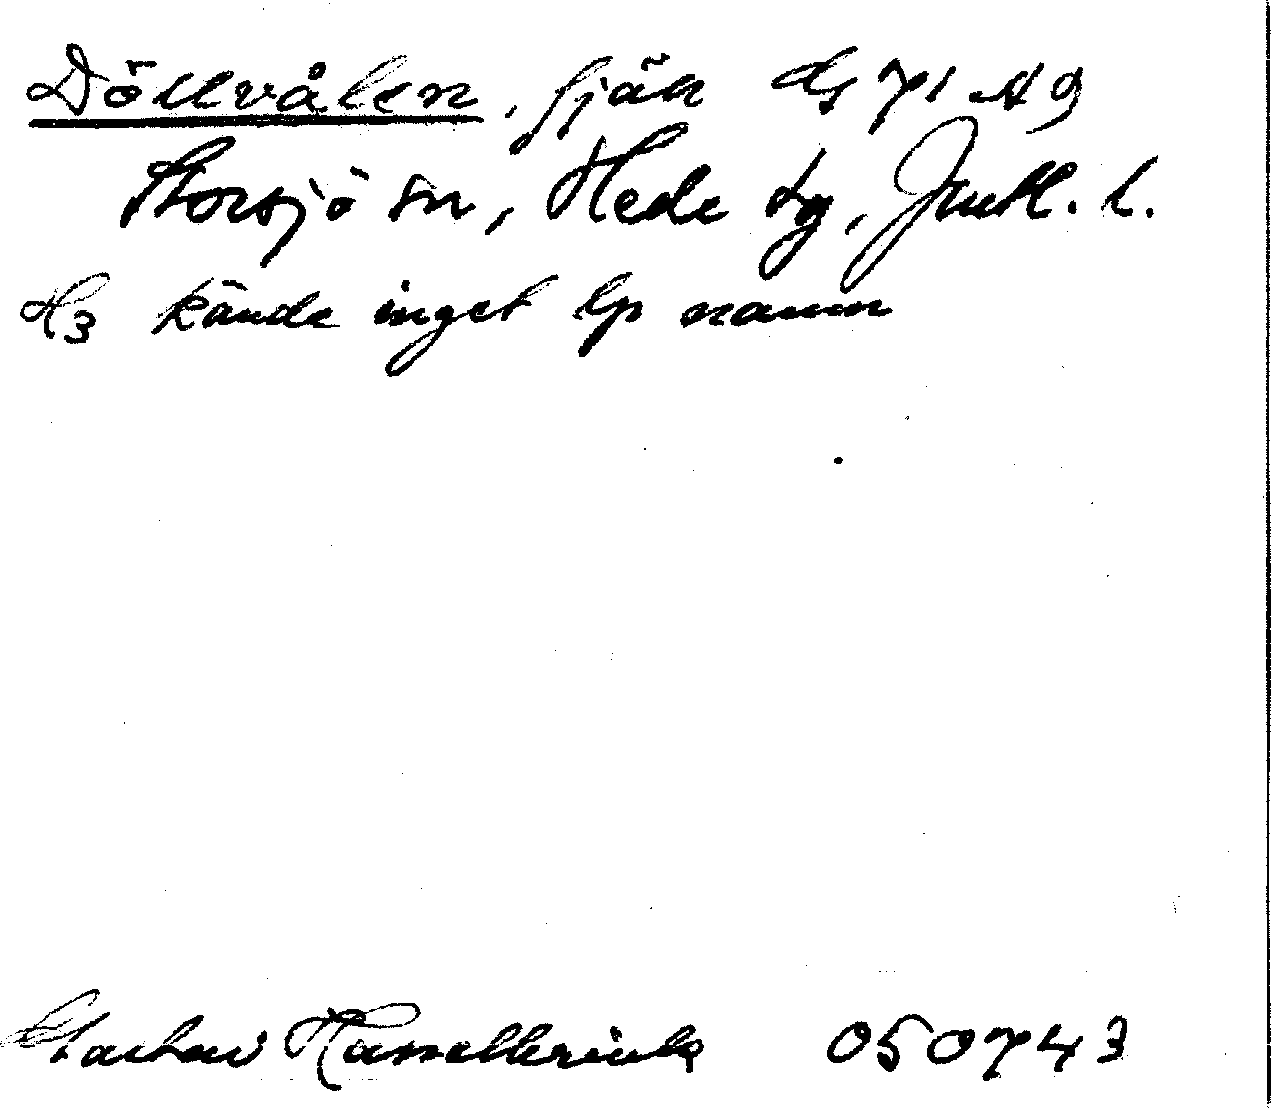 Döllvålen, fjäll ds 71 A 9
Storsjö sn, Hede tg, Jmtl. l.
H3 kände inget lp namn
Gustav Hasselbrink 050743